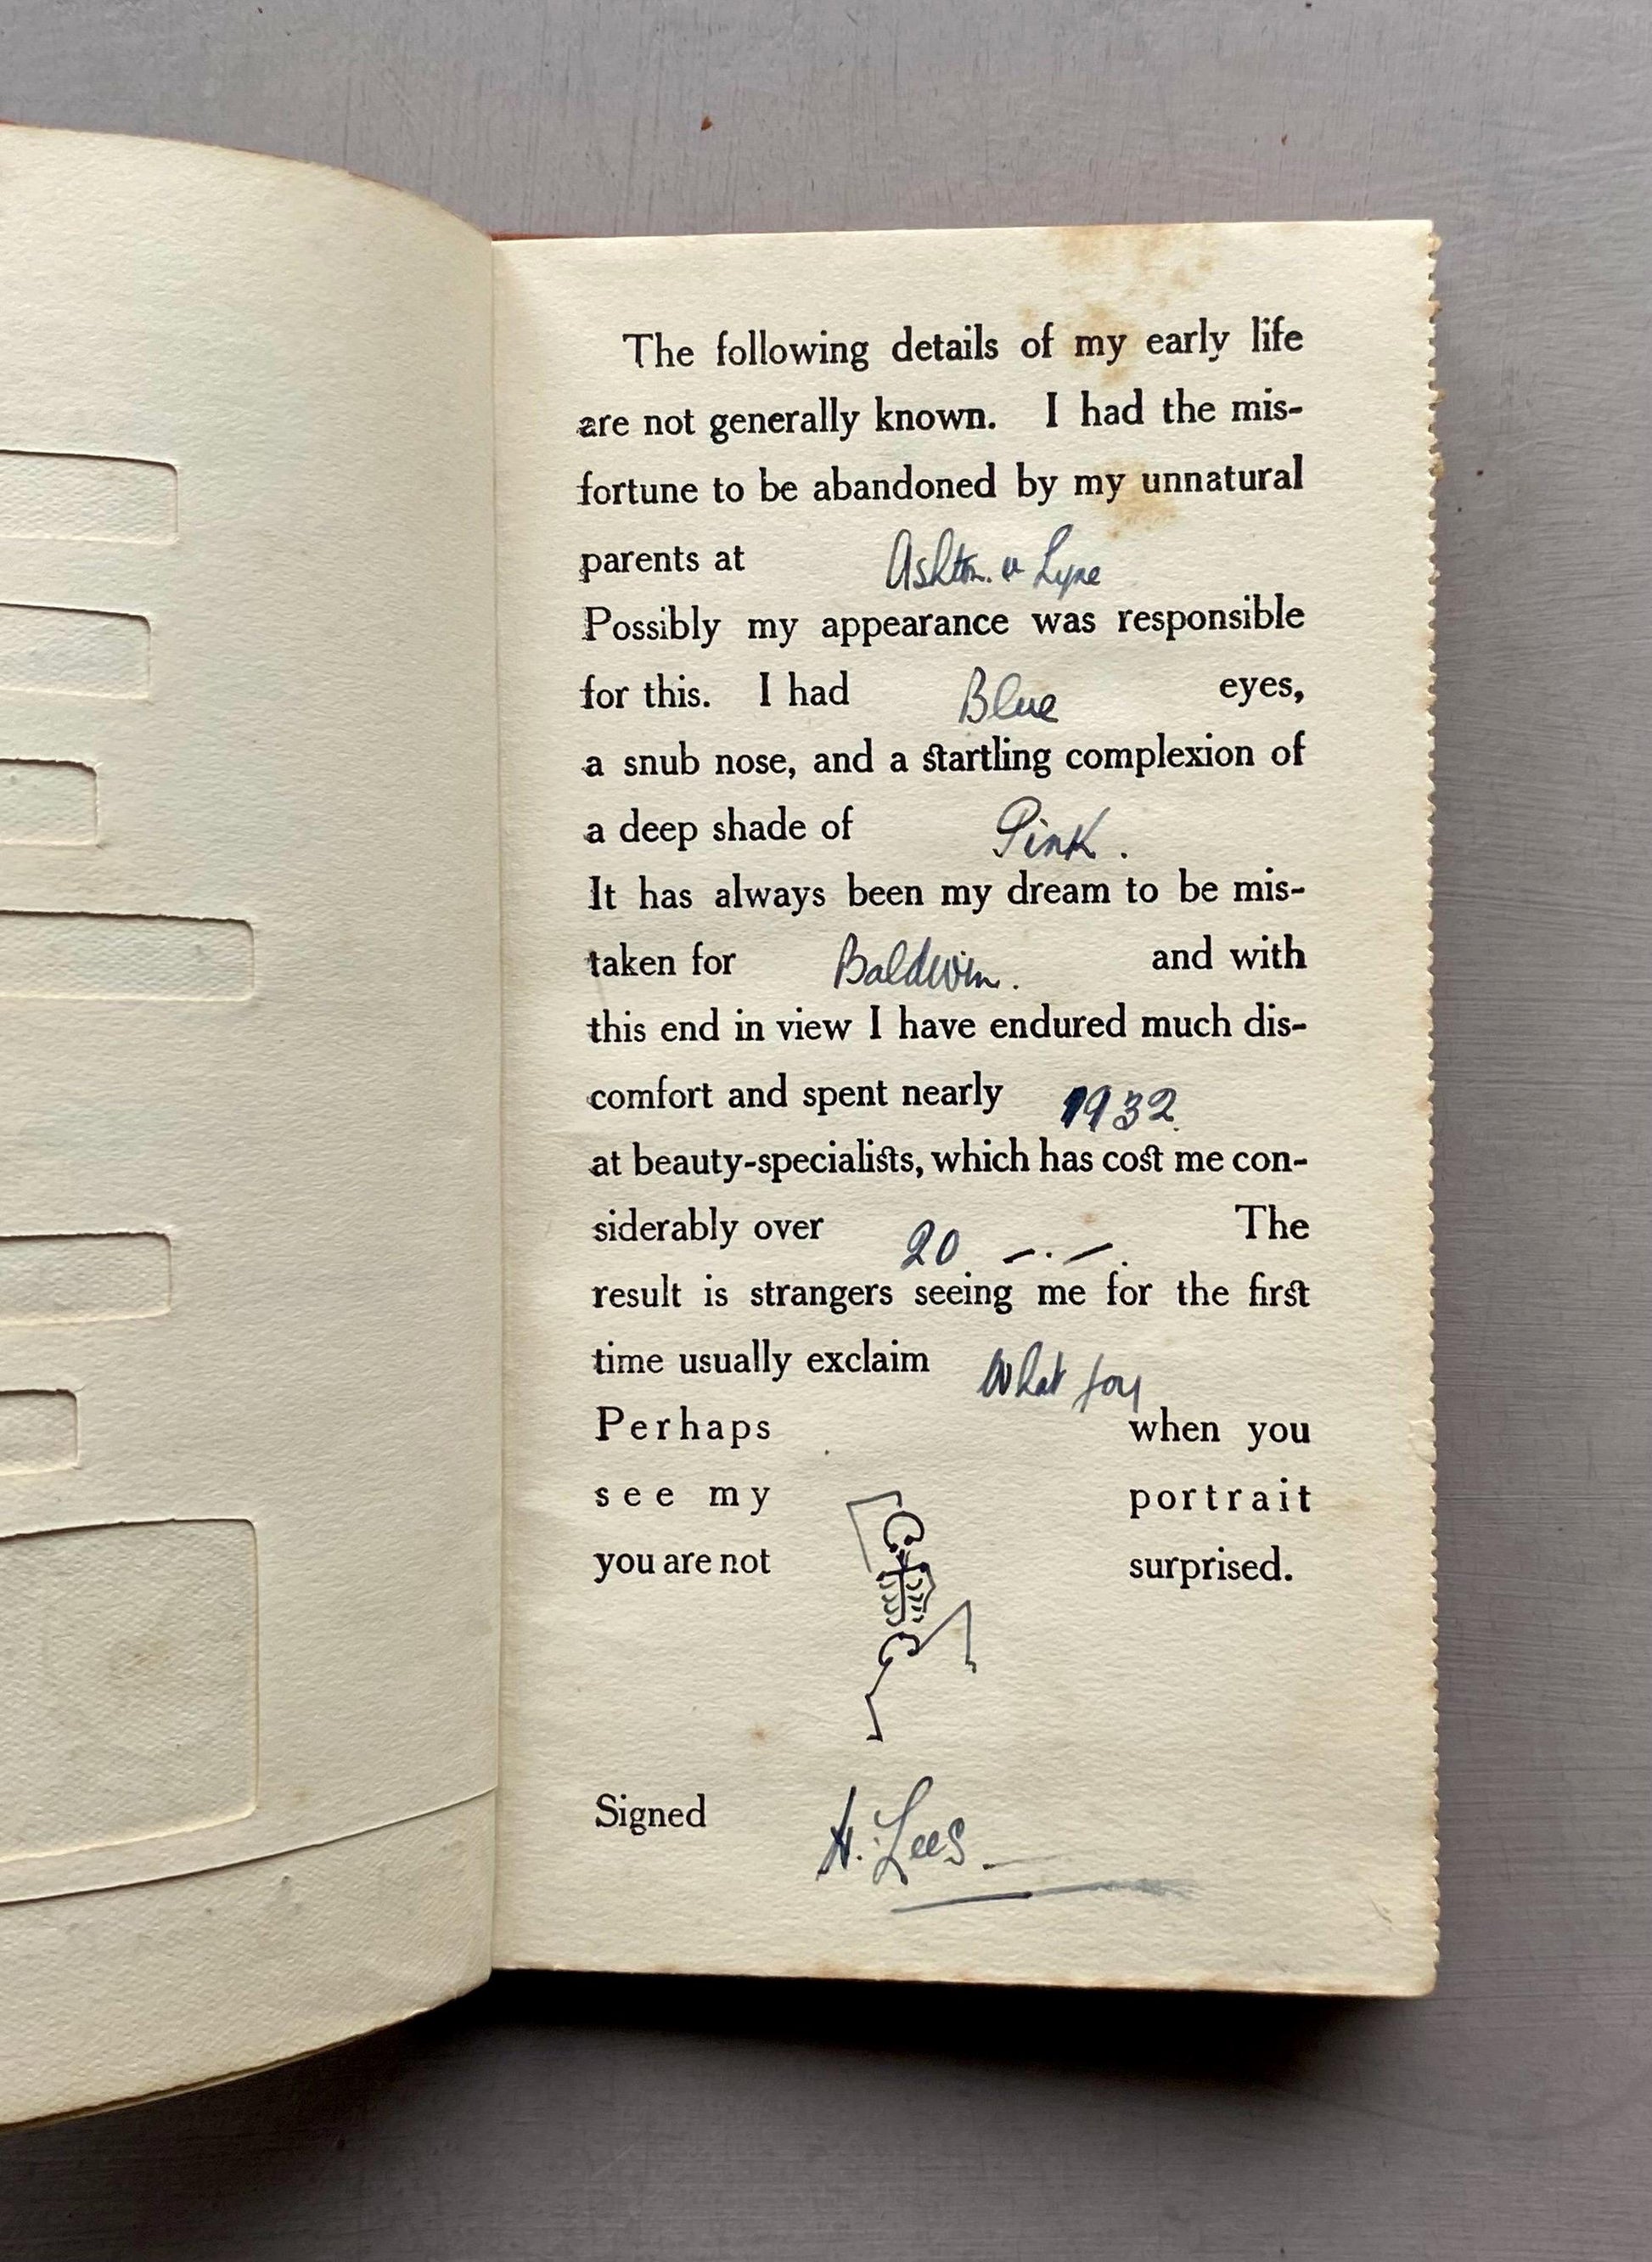 The following details of my early life
are not generally known. I had the mis-
fortune to be abandoned by my unnatural
parents at Ashton. u Lyne
Possibly my appearance was responsible
for this. I had Blue eyes,
a snub nose, and a startling complexion of
a deep shade of Pink.
It has always been my dream to be mis-
taken for Baldwin. and with
this end in view I have endured much dis-
comfort and spent nearly 1932
at beauty-specialists, which has cost me con-
siderably over 20 -.-. The
result is strangers seeing me for the first
time usually exclaim What
Perhaps when you
see my portrait
you are not surprised.
Signed H. Lees